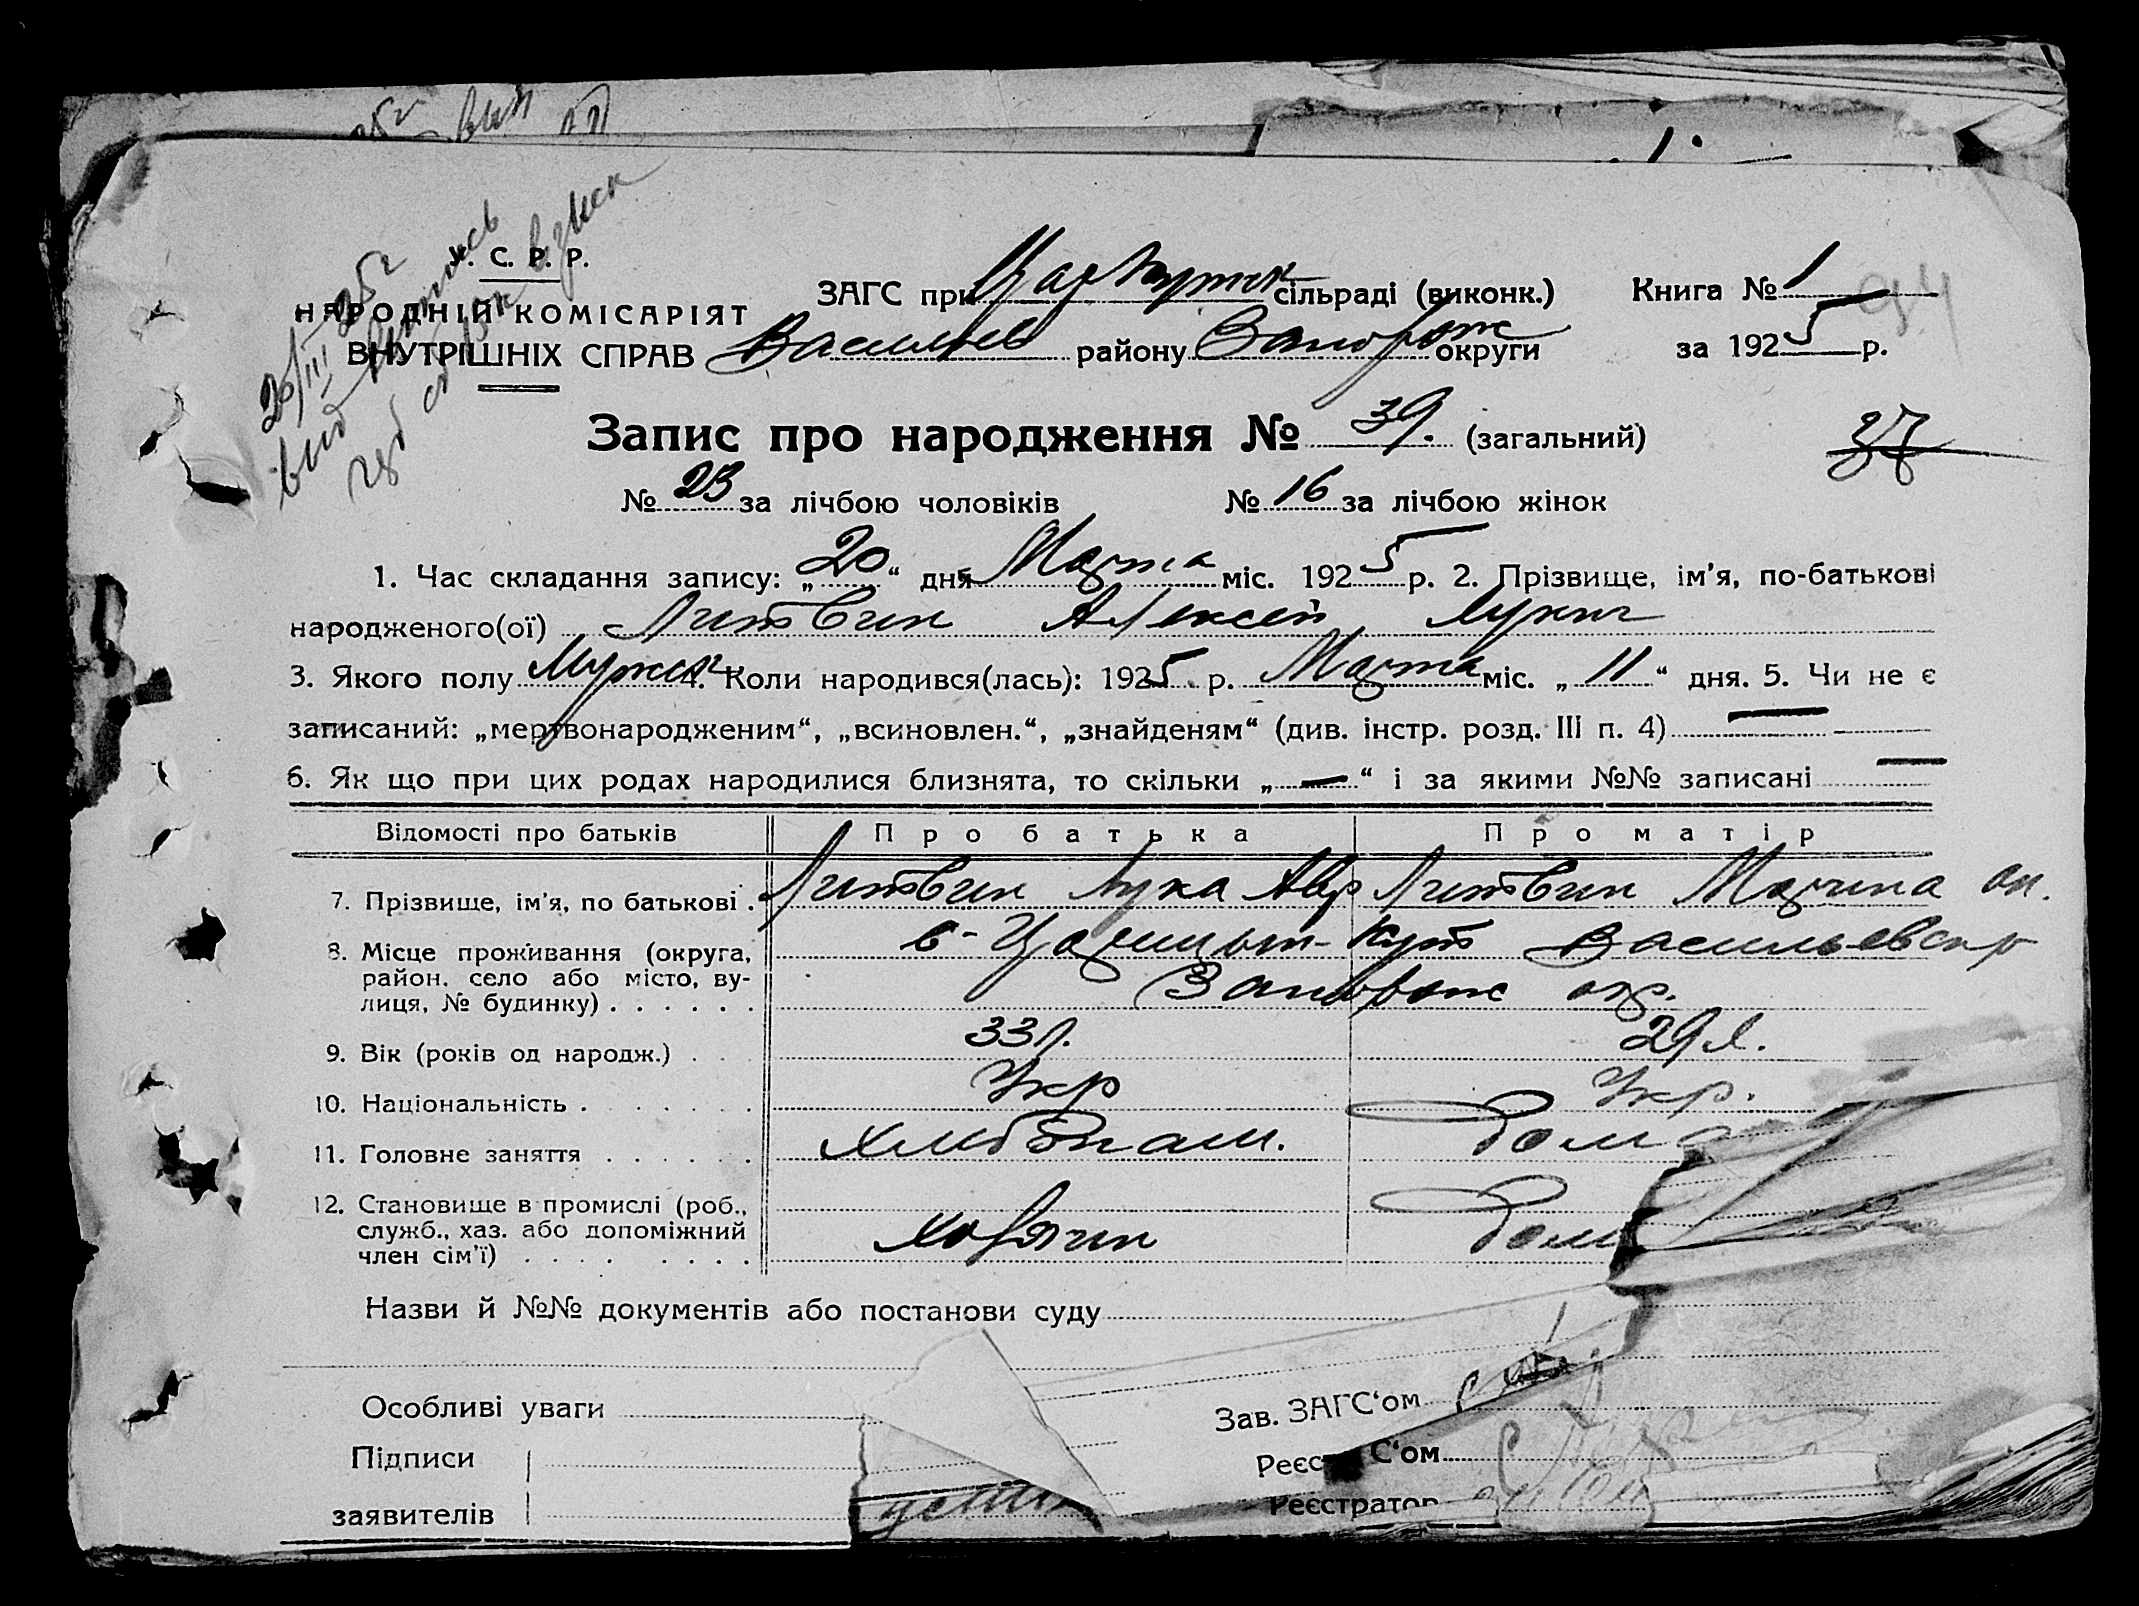 25г
вып
У. С. Р. Р.
НАРОДНІЙ КОМІСАРІЯТ
ВНУТРІШНІХ СПРАВ
20/III 25г
ЗАГС при Царкутск сільраді (виконк.) Книга № 1
Васильев району Запорож округи за 1925 р.
Запис про народження № 39. (загальний)
37
№ 23 за лічбою чоловіків № 16 за лічбою жінок
1. Час складання запису: „20“ дня Марта міс. 1925 р. 2. Прізвище, ім'я, по-батькові
народженого(ої) Литвин Алексей Лукич
3. Якого полу Мужск 4. Коли народився(лась): 1925 р. Марта міс. „11“ дня. 5. Чи не є
записаний: „мертвонародженим“, „всиновлен.“, „знайденям“ (див. інстр. розд. III п. 4) —
6. Як що при цих родах народилися близнята, то скільки „—“ і за якими №№ записані —
Відомості про батьків Про батька Про матір
7. Прізвище, ім'я, по батькові . Литвин Лука Авр Литвин Марина
8. Місце проживання (округа, район, село або місто, вулиця, № будинку) . . . . . . с-Царицын-Кут Васильевск р
Запорож окр.
9. Вік (років од народж.) . . . 33л. 29л.
10. Національність . . . . . . . Укр Укр.
11. Головне заняття . . . . . . Хлебопаш. Дома
12. Становище в промислі (роб.,
служб., хаз. або допоміжний
член сім'ї) . . . . . . . . Хозяин Дом
Назви й №№ документів або постанови суду
Особливі уваги
Зав. ЗАГС'ом
Підписи
Реєс С'ом
заявителів
Реєстратор